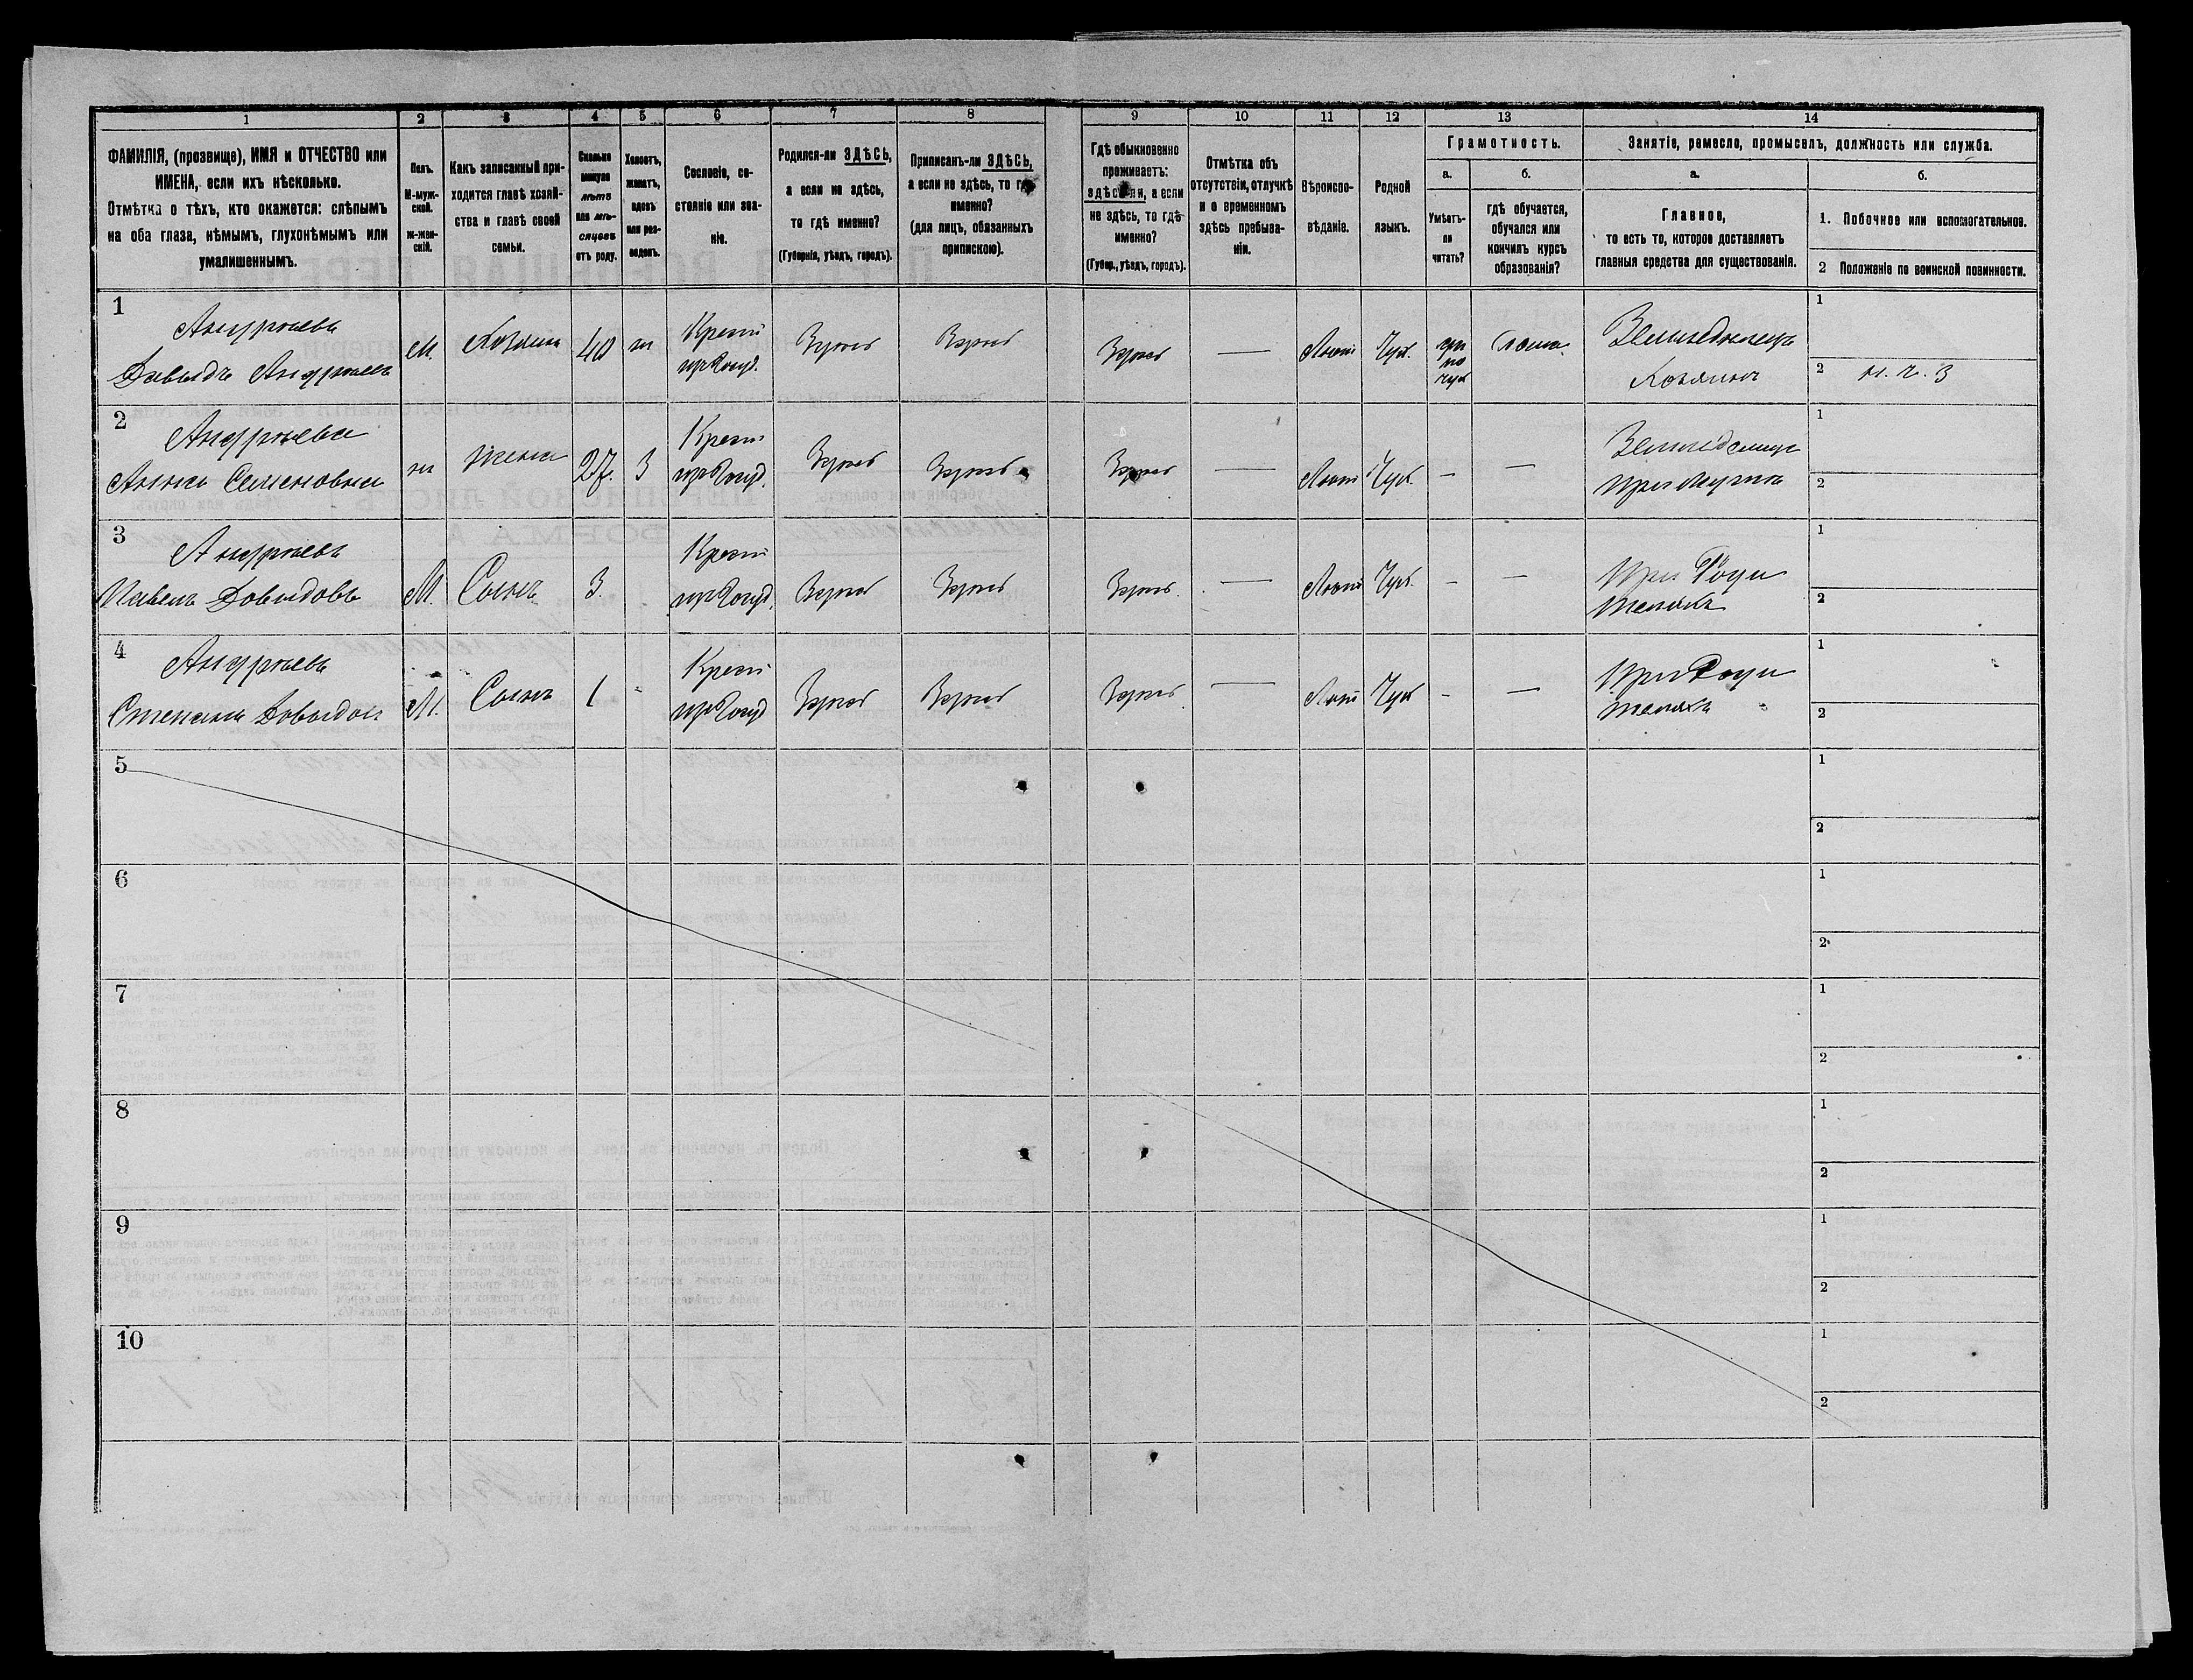 1 2 3 4 5 6 7 8 9 10 11 12 13 14
ФАМИЛІЯ, (прозвище), ИМЯ и ОТЧЕСТВО или
ИМЕНА, если ихъ нѣсколько.
Отмѣтка о тѣхъ, кто окажется: слѣпымъ
на оба глаза, нѣмымъ, глухонѣмымъ или
умалишеннымъ.
Полъ.
М-муж-
ской.
ж-жен-
скій.
Какъ записанный при-
ходится главѣ хозяй-
ства и главѣ своей
семьи.
Сколько
минуло
лѣтъ
или мѣ-
сяцевъ
отъ роду.
Холостъ,
женатъ,
вдовъ
или раз-
веденъ.
Сословіе, со-
стояніе или зва-
ніе.
Родился-ли ЗДѢСЬ,
а если не здѣсь,
то гдѣ именно?
(Губернія, уѣздъ, городъ).
Приписанъ-ли ЗДѢСЬ,
а если не здѣсь, то гдѣ
именно?
(для лицъ, обязанныхъ
припискою).
Гдѣ обыкновенно
проживаетъ:
здѣсь-ли, а если
не здѣсь, то гдѣ
именно?
(Губер., уѣздъ, городъ).
Отмѣтка объ
отсутствіи, отлучкѣ
и о временномъ
здѣсь пребыва-
ніи.
Вѣроиспо-
вѣданіе.
Родной
языкъ.
Грамотность.
а.
Умѣетъ-
ли
читать?
б.
гдѣ обучается,
обучался или
кончилъ курсъ
образованія?
Занятіе, ремесло, промыселъ, должность или служба.
а.
Главное,
то есть то, которое доставляетъ
главныя средства для существованія.
б.
1. Побочное или вспомогательное.
2 Положеніе по воинской повинности.
1
Андреевъ
Давыдъ Андреевъ
М. Хозяинъ 40 ж
Крест
Здѣсь Здѣсь Здѣсь — Чув.
по
чув
Земледѣлецъ
Хозяинъ
1
2
2
Андреева
Анна Семеновна
ж жена 27. З
Крест
Здѣсь Здѣсь Здѣсь — Чув. — —
при мужѣ
1
2
3
Андреевъ
Павелъ Довыдовъ
М. Сынъ 3.
Крест
Здѣсь Здѣсь Здѣсь — Чув. — —
При Роди
теляхъ
1
2
4
Андреевъ
Степанъ Довыдовъ
М. Сынъ 1 -
Крест
Здѣсь Здѣсь Здѣсь — Чув — —
При Роди
теляхъ
1
2
5
1
2
6
1
2
7
1
2
8
1
2
9
1
2
10
1
2